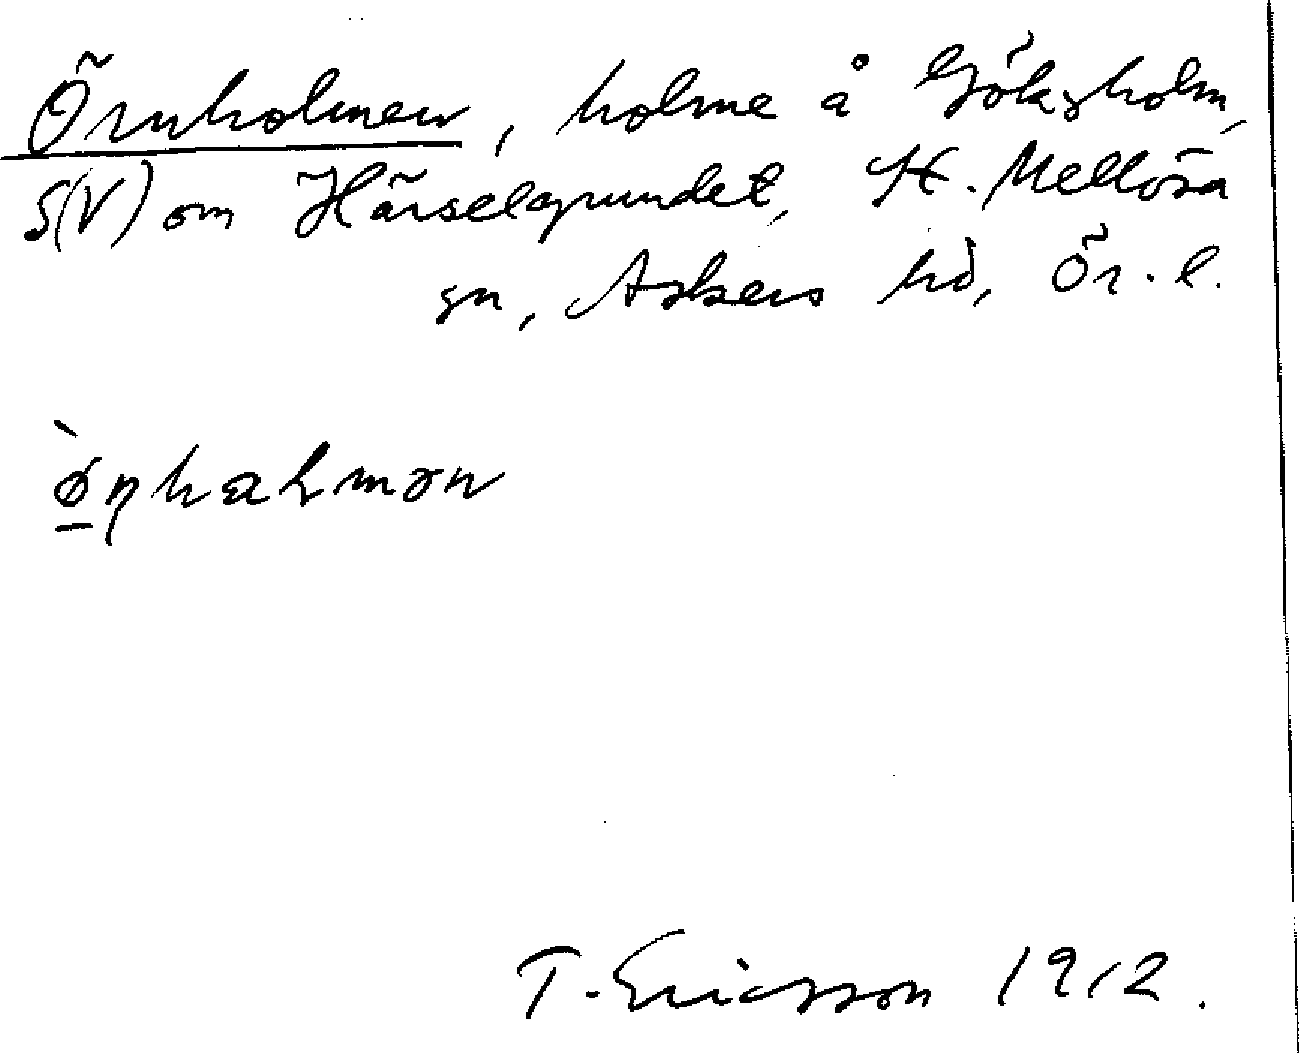 Örnholmen, holme å Göksholm,
S(V) om Härselgrundet, St. Mellösa
sn, Askers hd, Ör. l.
ø̱̀ŋhaɫmən
T. Ericsson 1912.